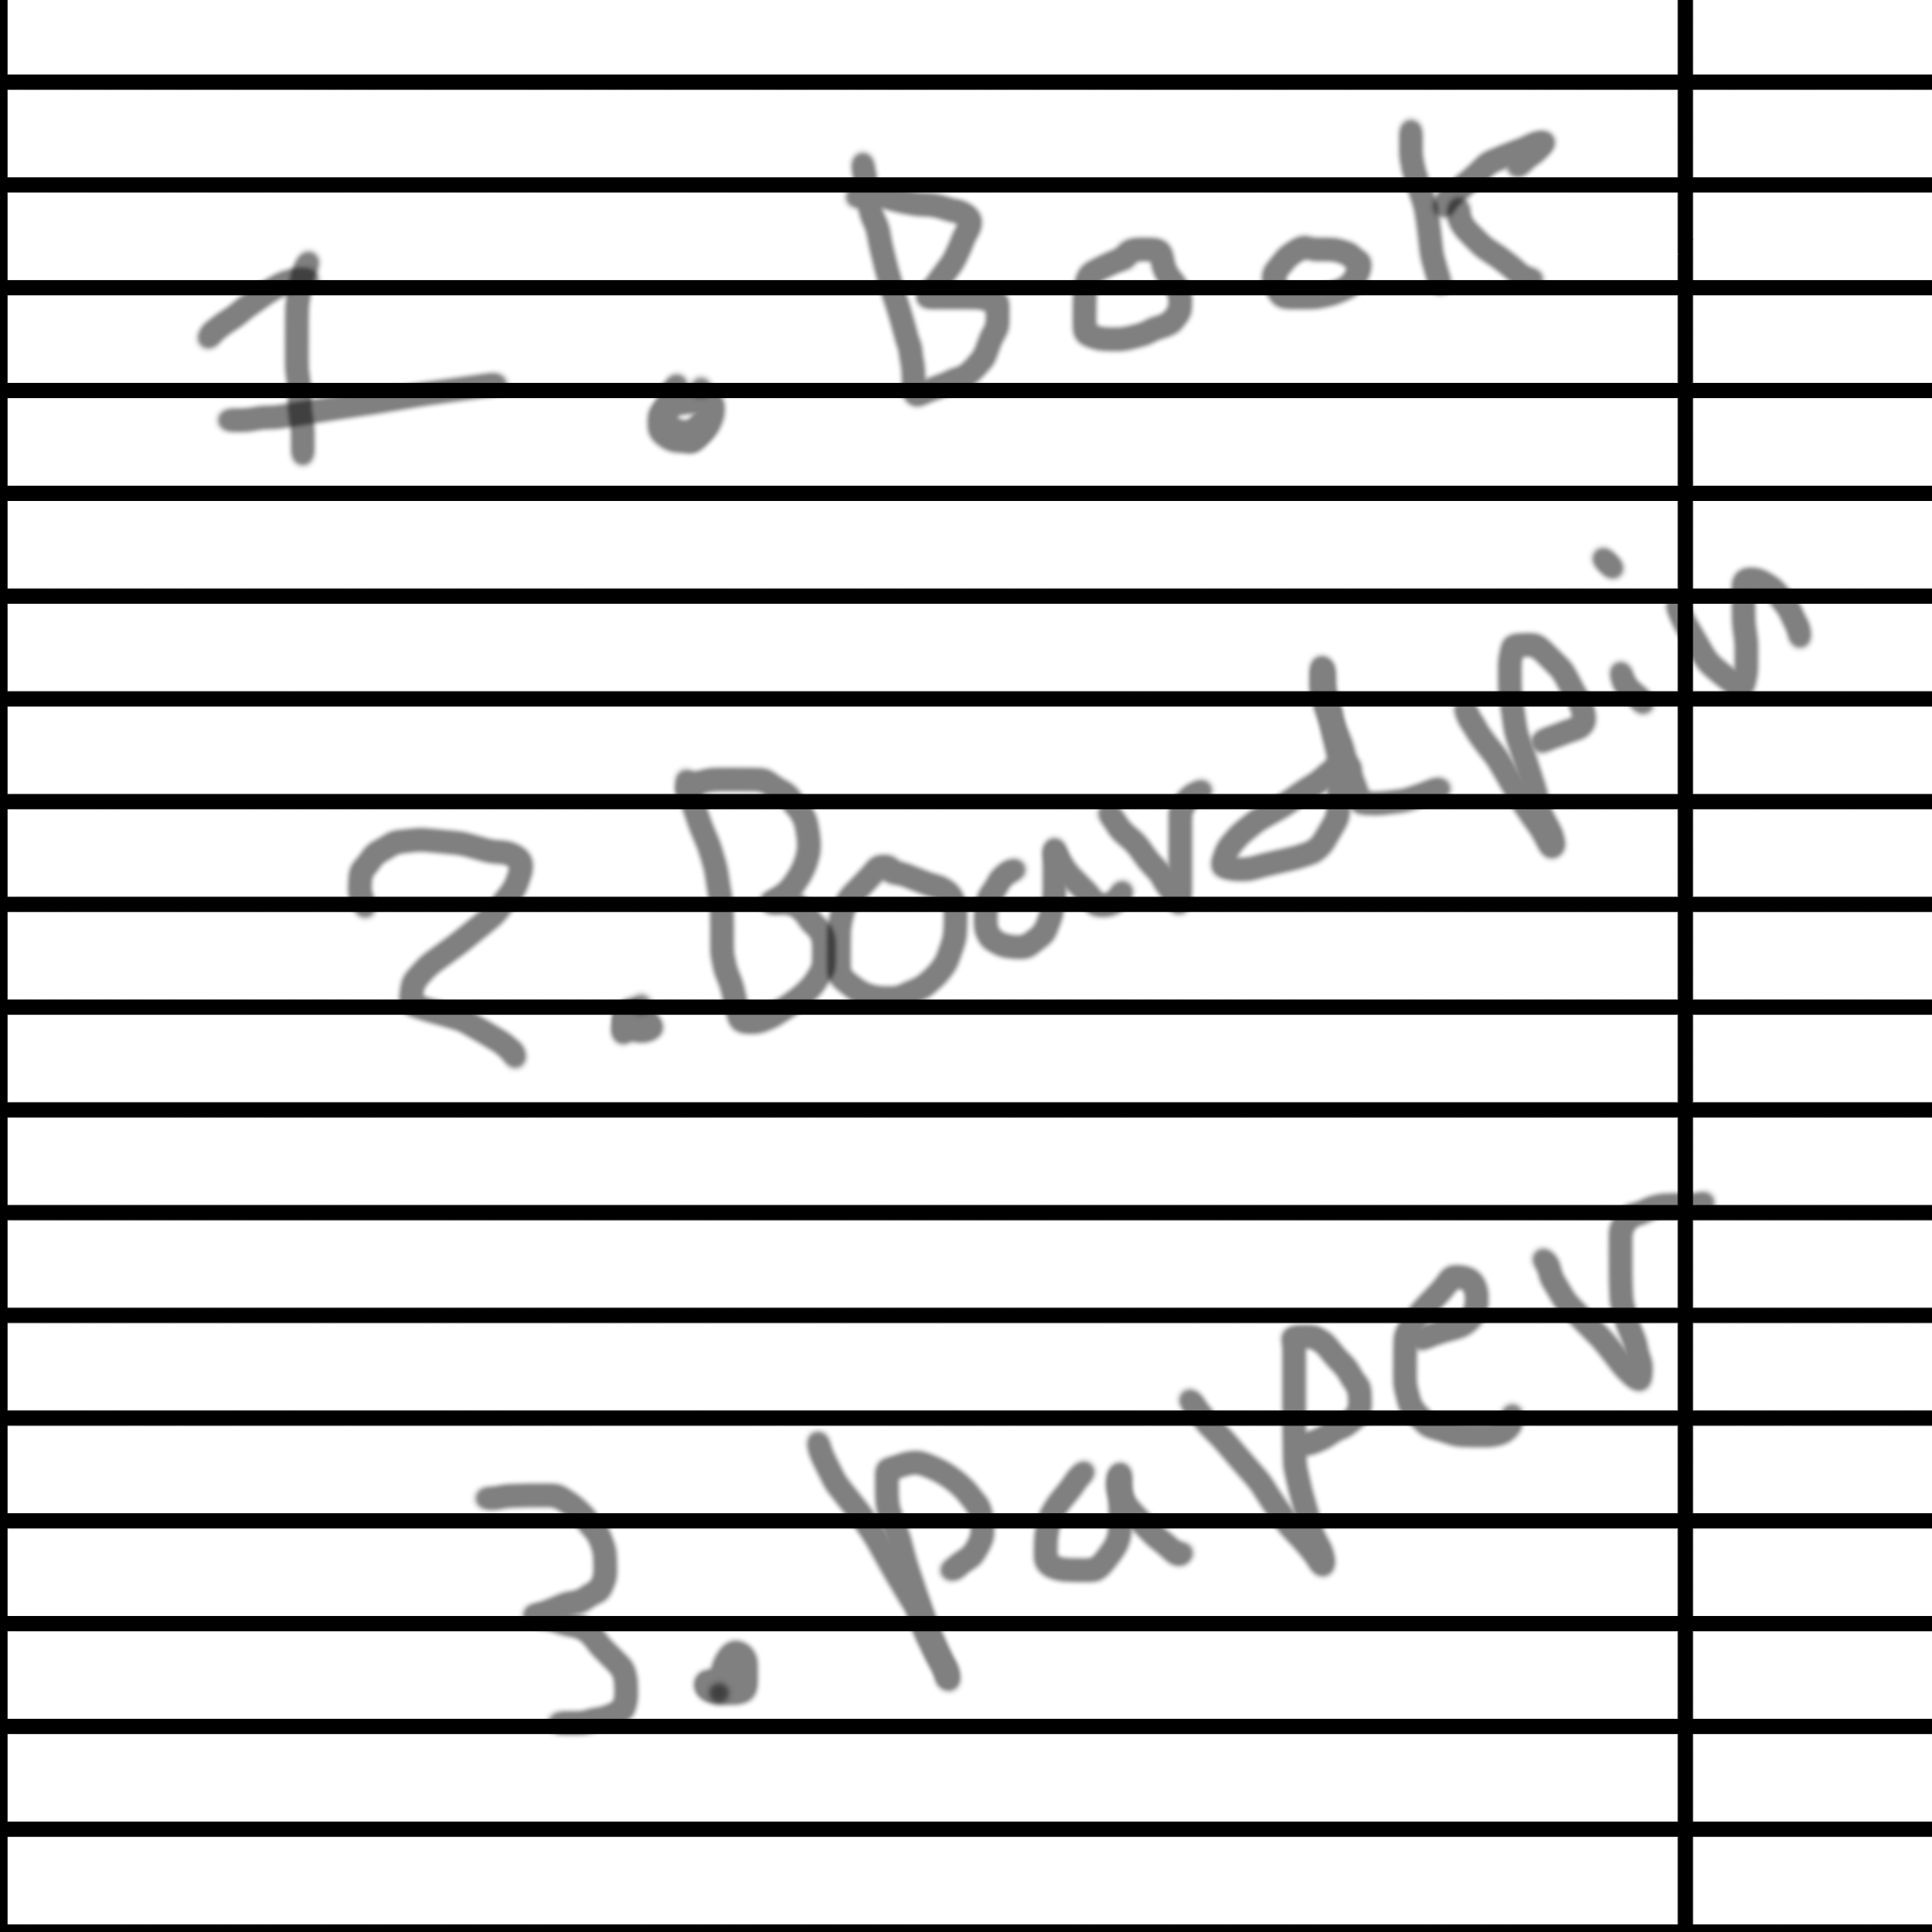 1. Book
2. Boardpin
3. paper